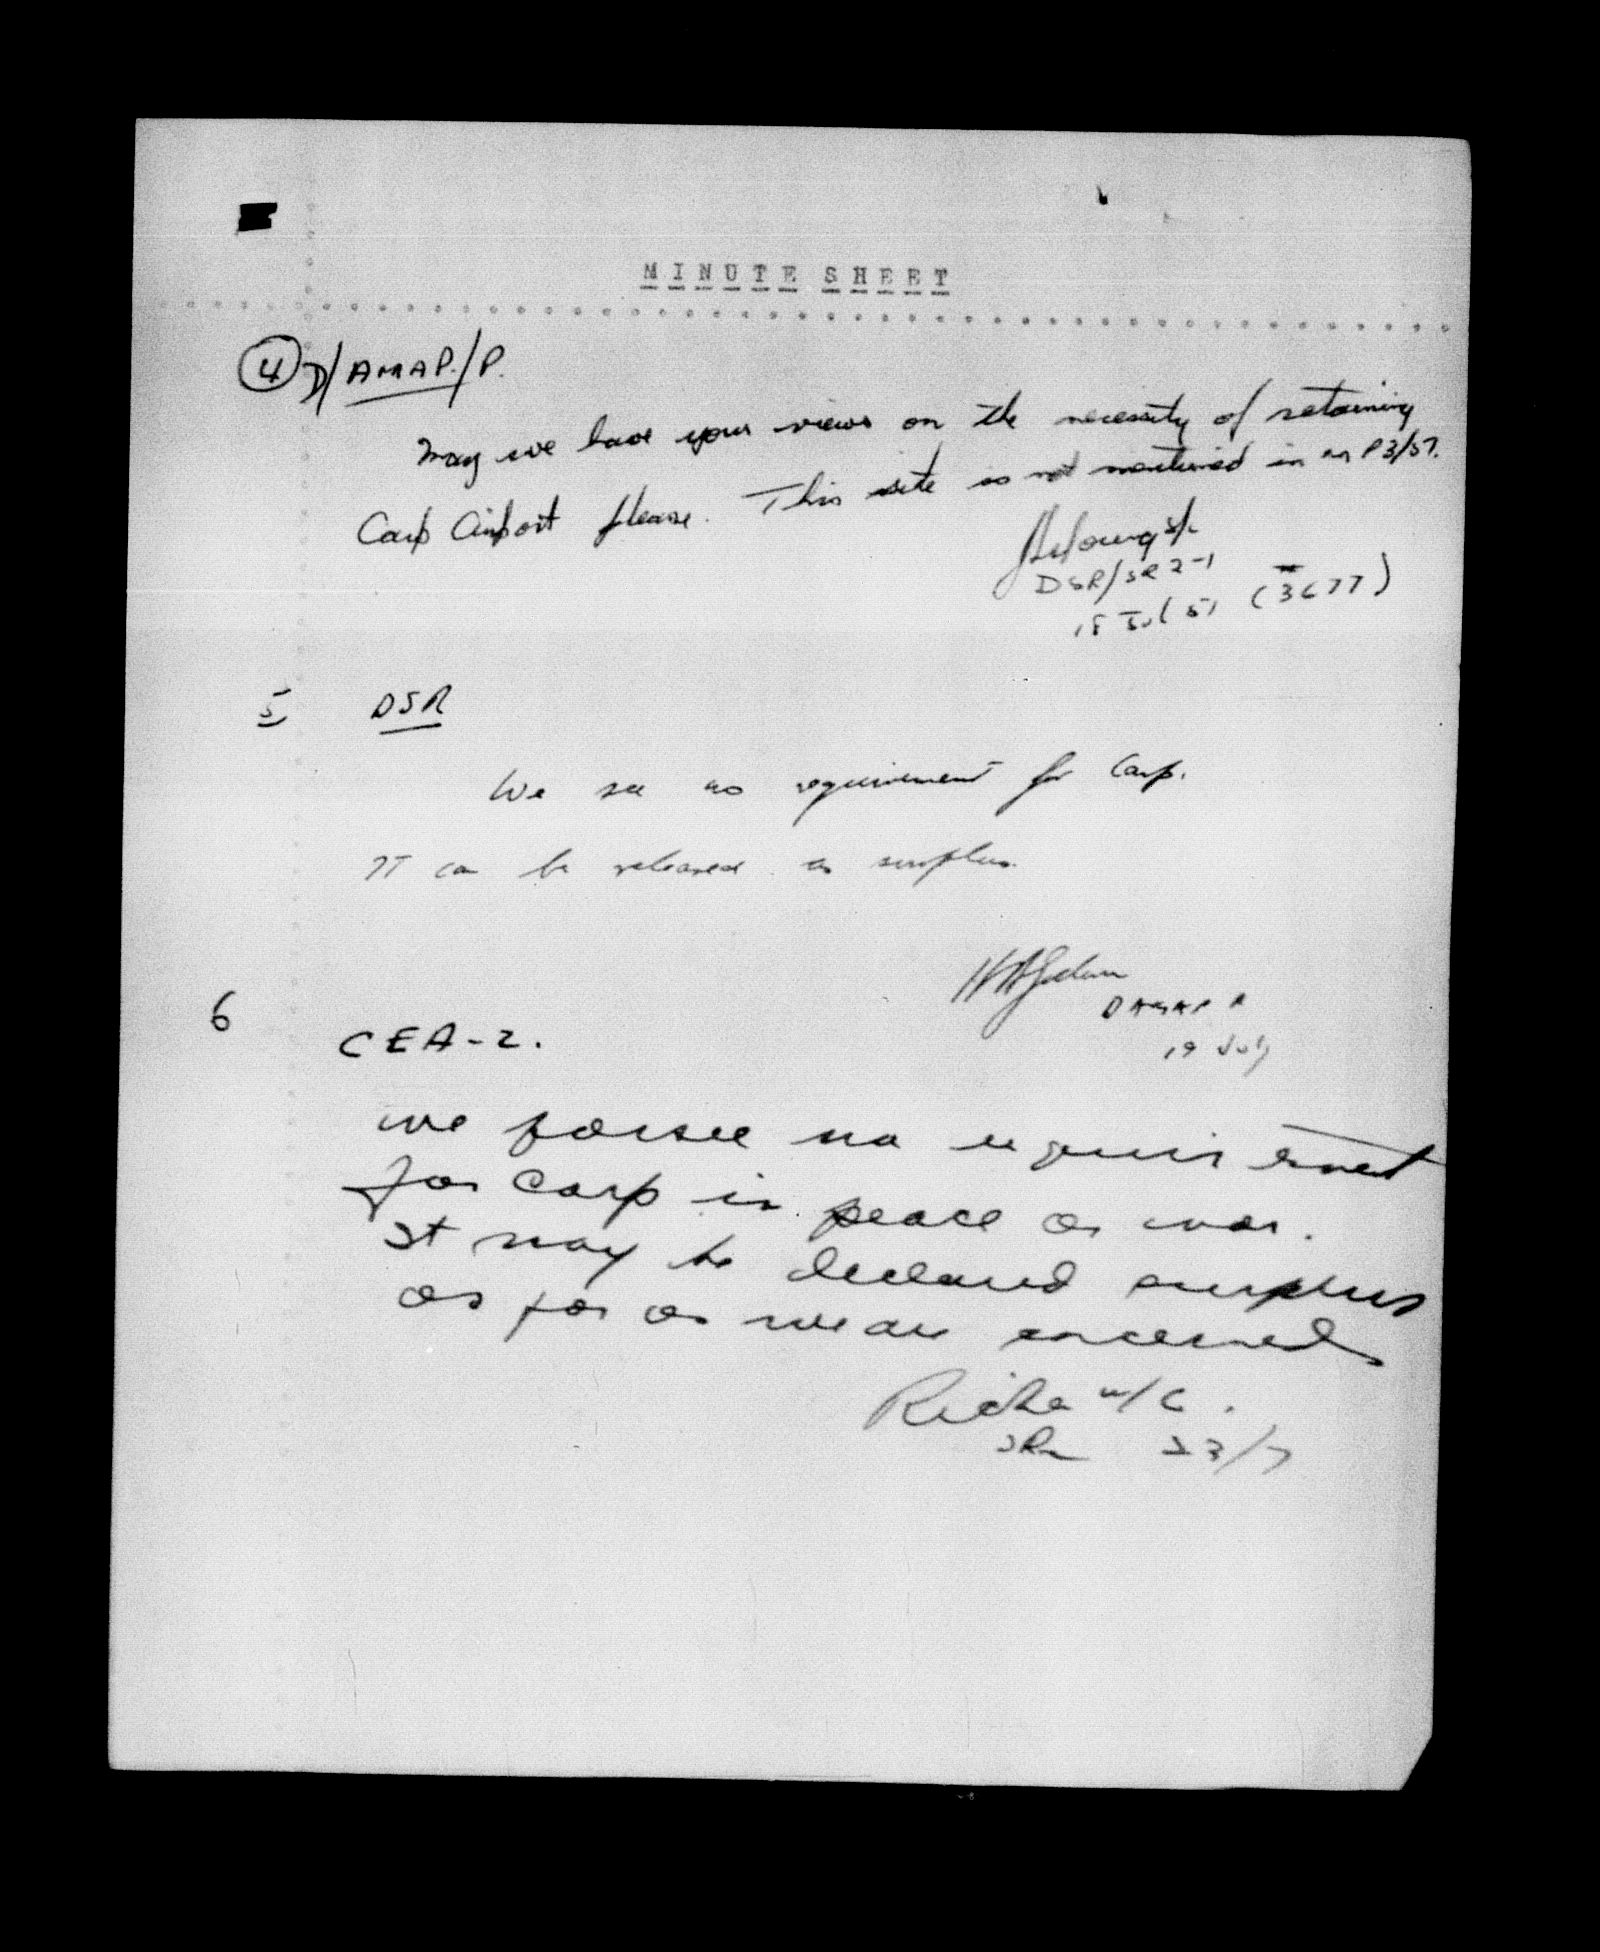 MINUTE SHEET
4 D/AMAP/P.
May we have your views on the necessity of retaining
Carp Airport please. This site is not mentioned in P3/51.
DSR/SR2-1
18 Jul 51 (3677)
5 DSR
We see no requirement for Carp.
IT can be released as surplus.
DAMAP P
19 July
6
CEA-2.
we forsee no requirement
for Carp in peace or war.
It may be declared surplus
as far as we are concerned
W/C.
23/7